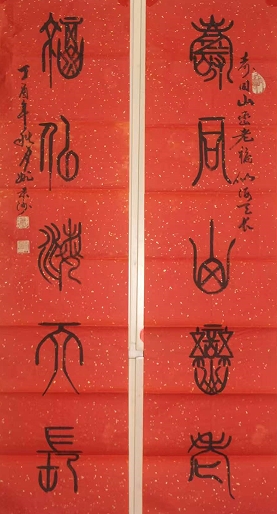 壽同山嶽老
寿同山岳老福似海天长
福似海天長
丁酉年秋月